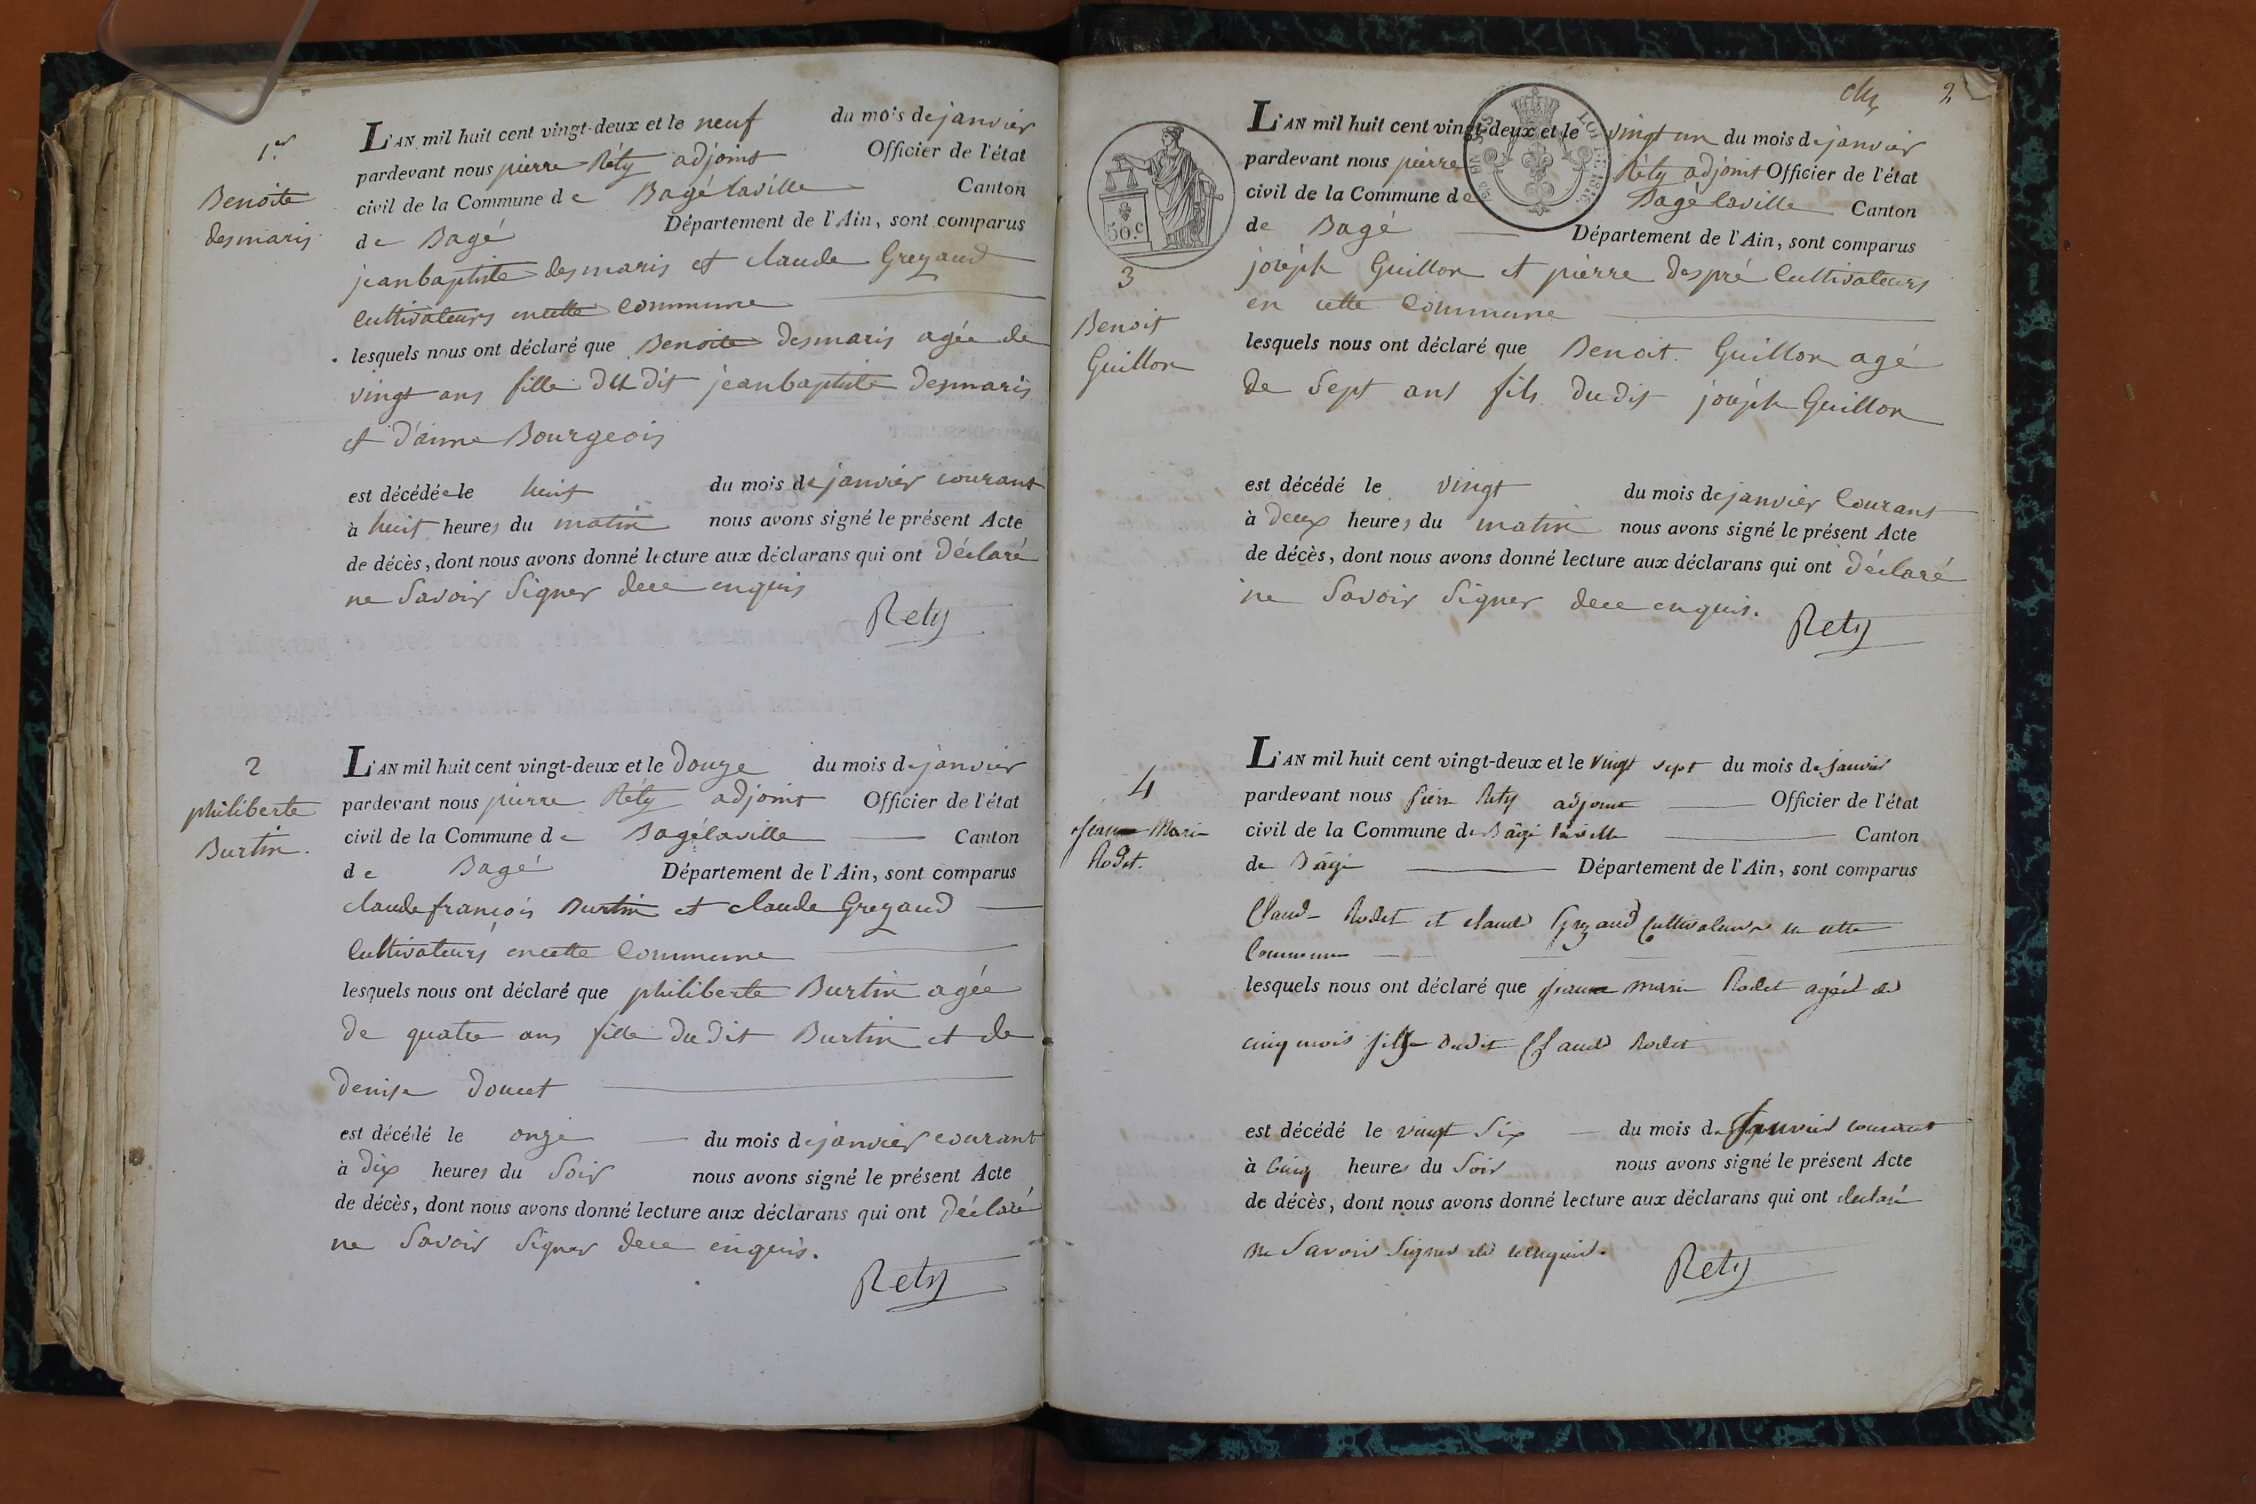 1.er
Benoite
desmaris
L'AN mil huit cent vingt-deux et le neuf du mois de janvier
pardevant nous pierre Réty adjoint Officier de l'état
civil de la Commune de Bagé laville Canton
de Bagé Département de l'Ain, sont comparus
jean baptiste desmaris et claude Grezaud
Cultivateurs en cette Commune
lesquels nous ont déclaré que Benoite desmaris agée de
vingt ans fille du dit jean baptiste desmaris
et d'anne Bourgeois
est décédée le huit du mois de janvier courant
à huit heures du matin nous avons signé le présent Acte
de décès, dont nous avons donné lecture aux déclarans qui ont déclaré
ne Savoir Signer de ce enquis
Rety
2
philiberte
Burtin.
L'AN mil huit cent vingt-deux et le douze du mois de janvier
pardevant nous pierre Réty adjoint Officier de l'état
civil de la Commune de Bagé laville Canton
de Bagé Département de l'Ain, sont comparus
claude françois Burtin et claude Grezaud
Cultivateurs en cette Commune
lesquels nous ont déclaré que philiberte Burtin agée
de quatre ans fille du dit Burtin et de
denise doucet
est décédé le onze du mois de janvier courant
à dix heures du Soir nous avons signé le présent Acte
de décès, dont nous avons donné lecture aux déclarans qui ont déclaré
ne Savoir Signer de ce enquis.
Rety
2
50.c
LOI DE 1816.
3
Benoit
Guillon
L'AN mil huit cent vingt-deux et le vingt un du mois de janvier
pardevant nous pierre Réty adjoint Officier de l'état
civil de la Commune de Bagé laville Canton
de Bagé Département de l'Ain, sont comparus
joséph Guillon et pierre despré Cultivateurs
en cette Commune
lesquels nous ont déclaré que Benoit Guillon agé
de Sept ans fils du dit joséph Guillon
est décédé le vingt du mois de janvier Courant
à deux heures du matin nous avons signé le présent Acte
de décès, dont nous avons donné lecture aux déclarans qui ont déclaré
ne Savoir Signer de ce enquis.
Rety
4
jeanne Marie
Rodet.
L'AN mil huit cent vingt-deux et le vingt sept du mois de janvier
pardevant nous pierre Rety adjoint Officier de l'état
civil de la Commune de Bâgé laville Canton
de Bâgé Département de l'Ain, sont comparus
Claude Rodet et claude Grezaud Cultivateurs en cette
Commune
lesquels nous ont déclaré que jeanne marie Rodet agée de
cinq mois fille dudit Claude Rodet
est décédé le vingt Six du mois de janvier courant
à Cinq heures du Soir nous avons signé le présent Acte
de décès, dont nous avons donné lecture aux déclarans qui ont déclaré
ne Savoir Signer de ce enquis.
Rety